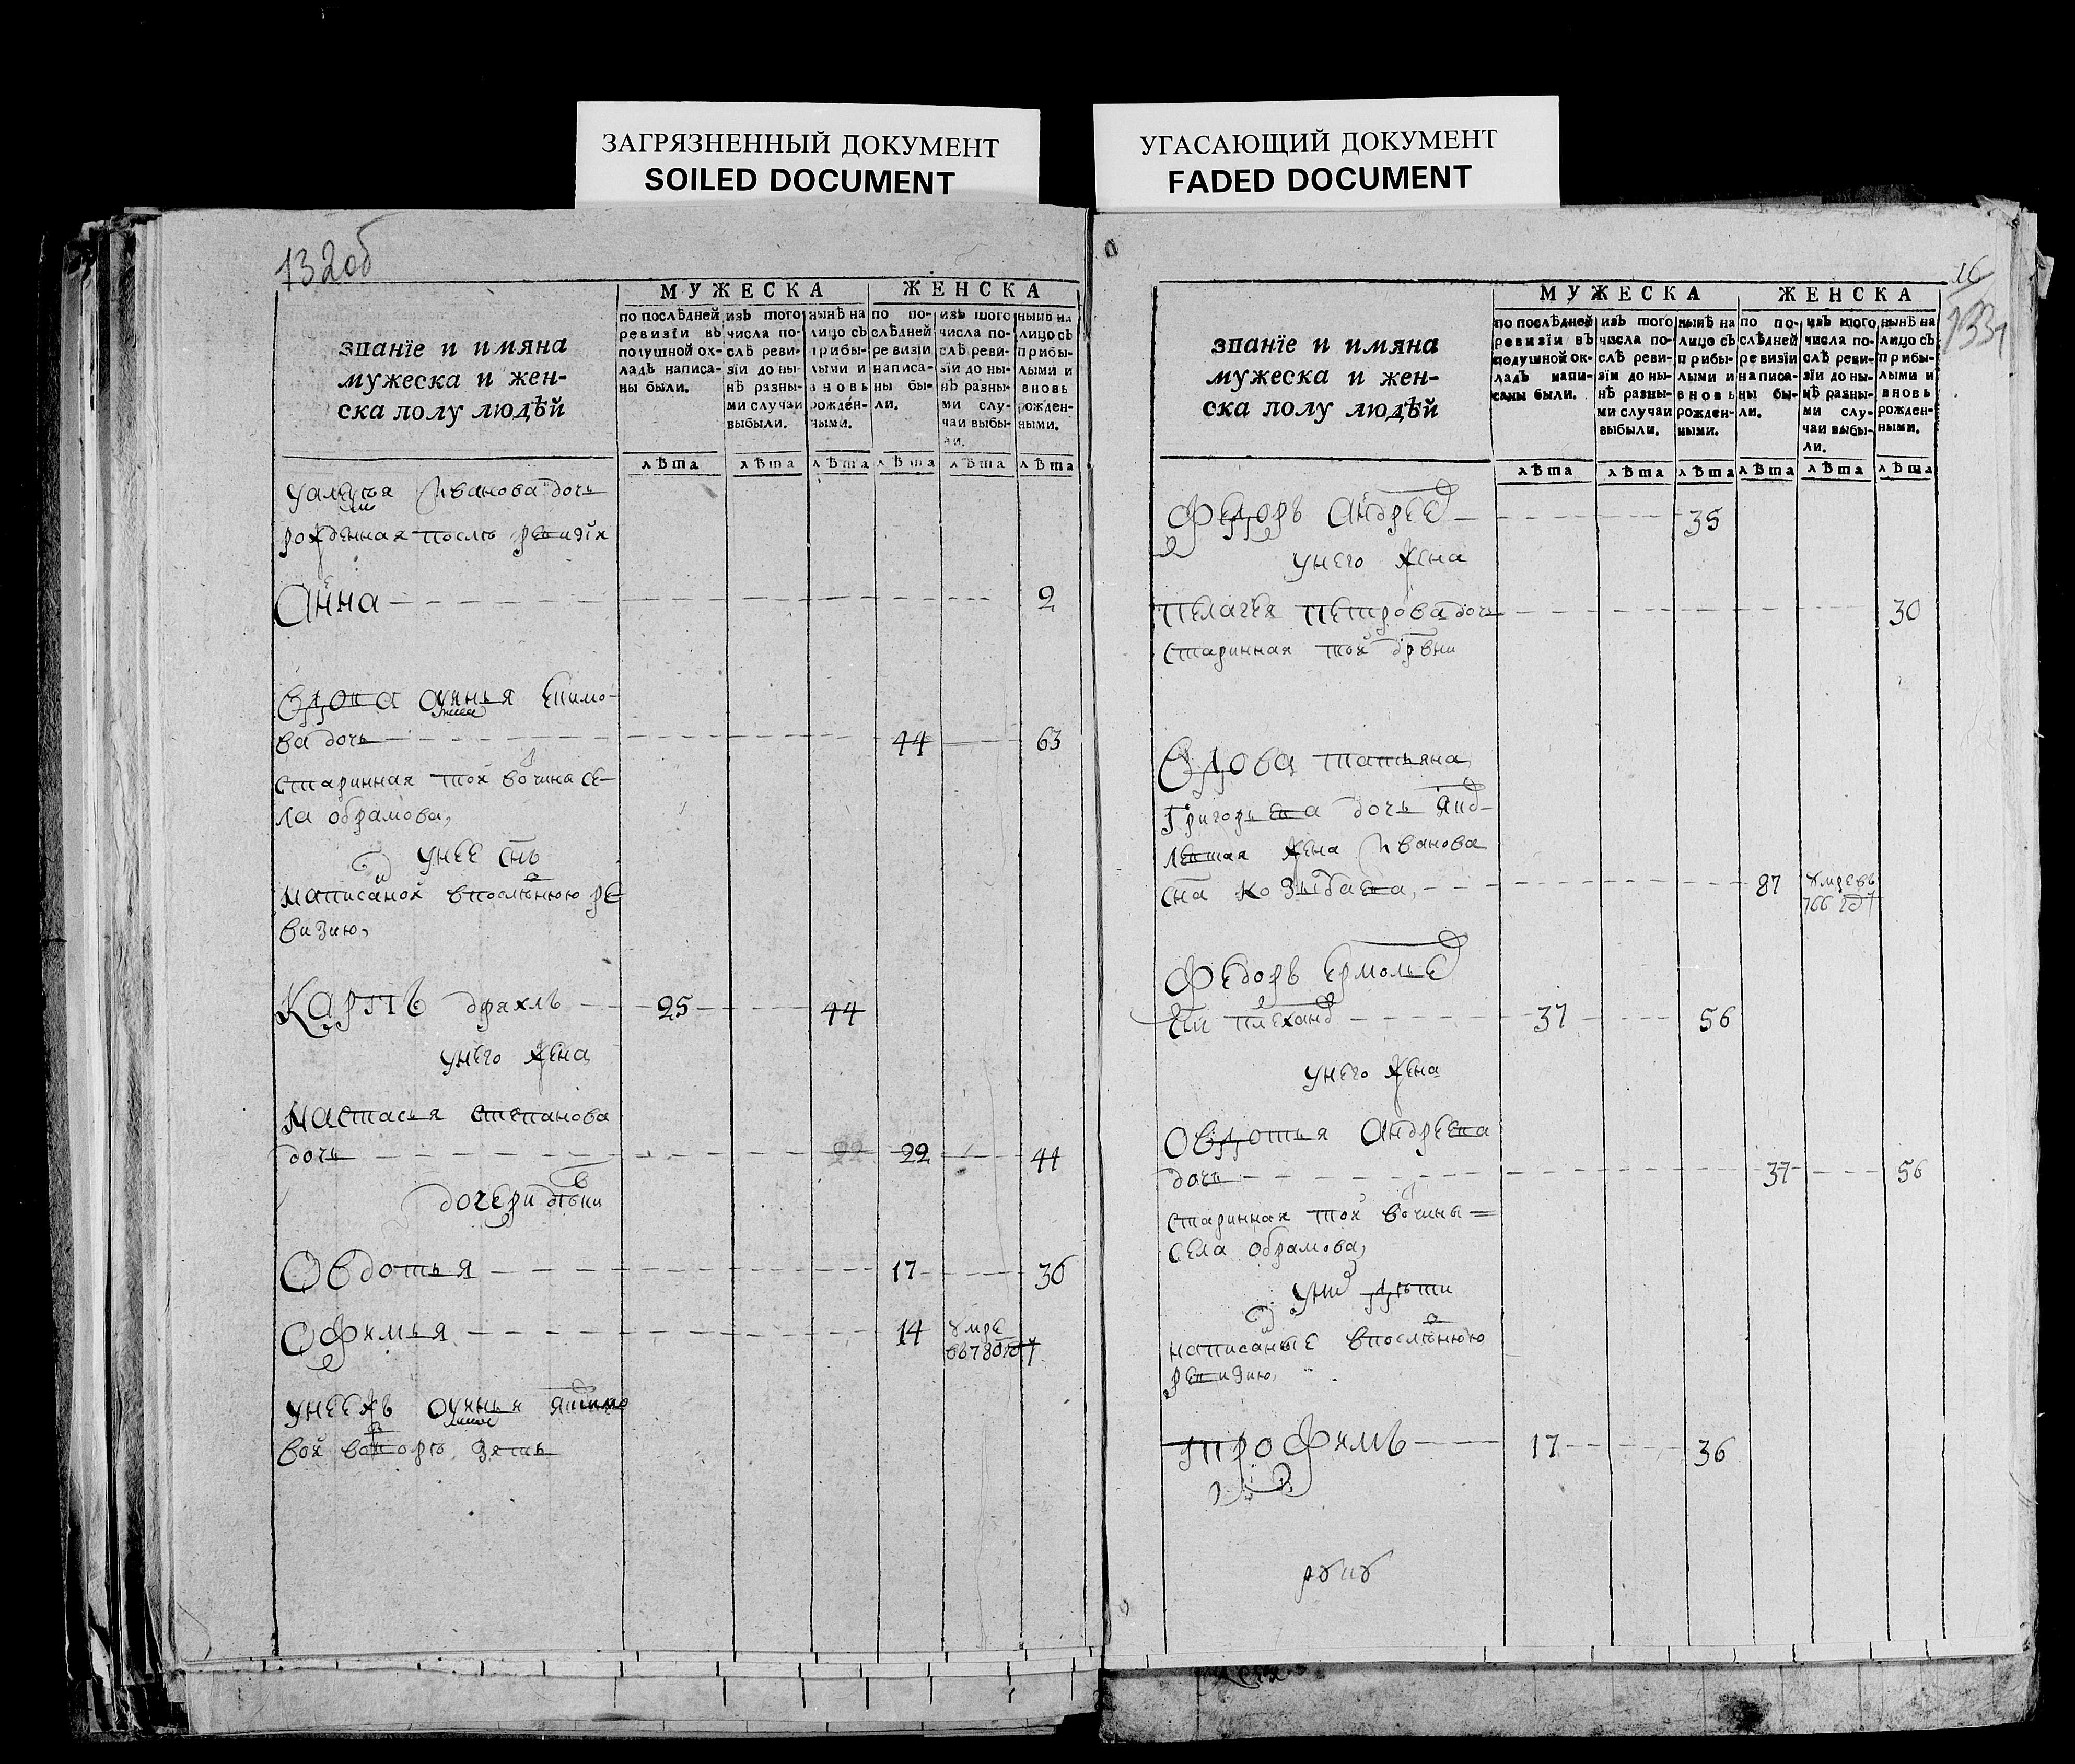 ЗАГРЯЗНЕННЫЙ ДОКУМЕНТ
SOILED DOCUMENT
УГАСАЮЩИЙ ДОКУМЕНТ
FADED DOCUMENT
132об
МУЖЕСКА ЖЕНСКА
званїе и имяна
мужеска и жен-
ска полу людѣй
по послѣдней
ревизїи въ
подушной ок-
ладъ написа-
ны были.
изъ того
числа по-
слѣ реви-
зїи до ны-
нѣ разны-
ми случаи
выбыли.
нынѣ на
лицо съ
прибы-
лыми и
вновь
рожден-
ными.
по по-
слѣдней
ревизїи
написа-
ны бы-
ли.
изъ того
числа по-
слѣ реви-
зїи до ны-
нѣ разны-
ми слу-
чаи выбы-
ли.
нынѣ на
лицо съ
прибы-
лыми и
вновь
рожден-
ными.
лѣта лѣта лѣта лѣта лѣта лѣта
Иванова дочь
рожденная послѣ ревизїи
Анна 2
Вдова Епимо-
ва дочь 44 63
старинная той вочины се-
ла Обрамова,
у нее снъ
написаной в послѣнюю ре
визию,
Карпъ дряхлъ 25 44
у него жена
Настасья Степанова
дочь 22 22 44
дочери дѣвки
Овдотья 17 36
Офимья 14 умре
въ 780 году
вой зять
16
133
МУЖЕСКА ЖЕНСКА
званїе и имяна
мужеска и жен-
ска полу людѣй
по послѣдней
ревизїи въ
подушной ок-
ладъ напи-
саны были.
изъ того
числа по-
слѣ реви-
зїи до ны-
нѣ разны-
ми случаи
выбыли.
нынѣ на
лицо съ
прибы-
лыми и
вновь
рожден-
ными.
по по-
слѣдней
ревизїи
написа-
ны бы-
ли.
изъ того
числа по-
слѣ реви-
зїи до ны-
нѣ разны-
ми слу-
чаи выбы-
ли.
нынѣ на
лицо съ
прибы-
лыми и
вновь
рожден-
ными.
лѣта лѣта лѣта лѣта лѣта лѣта
Федоръ Андреев 35
у него жена
Пелагея Петрова дочь 30
старинная той дрвни
Вдова Татьяна
Григорьева дочь
жена Иванова
сна 87 умре въ
766 году
Федоръ Ермолев
37 56
у него жена
Овдотья Андреева
дочь 37 56
старинная той вочины
села Обрамова,
у них дѣти
написаные в послѣнюю
ревизию,
Трофимъ 17 36